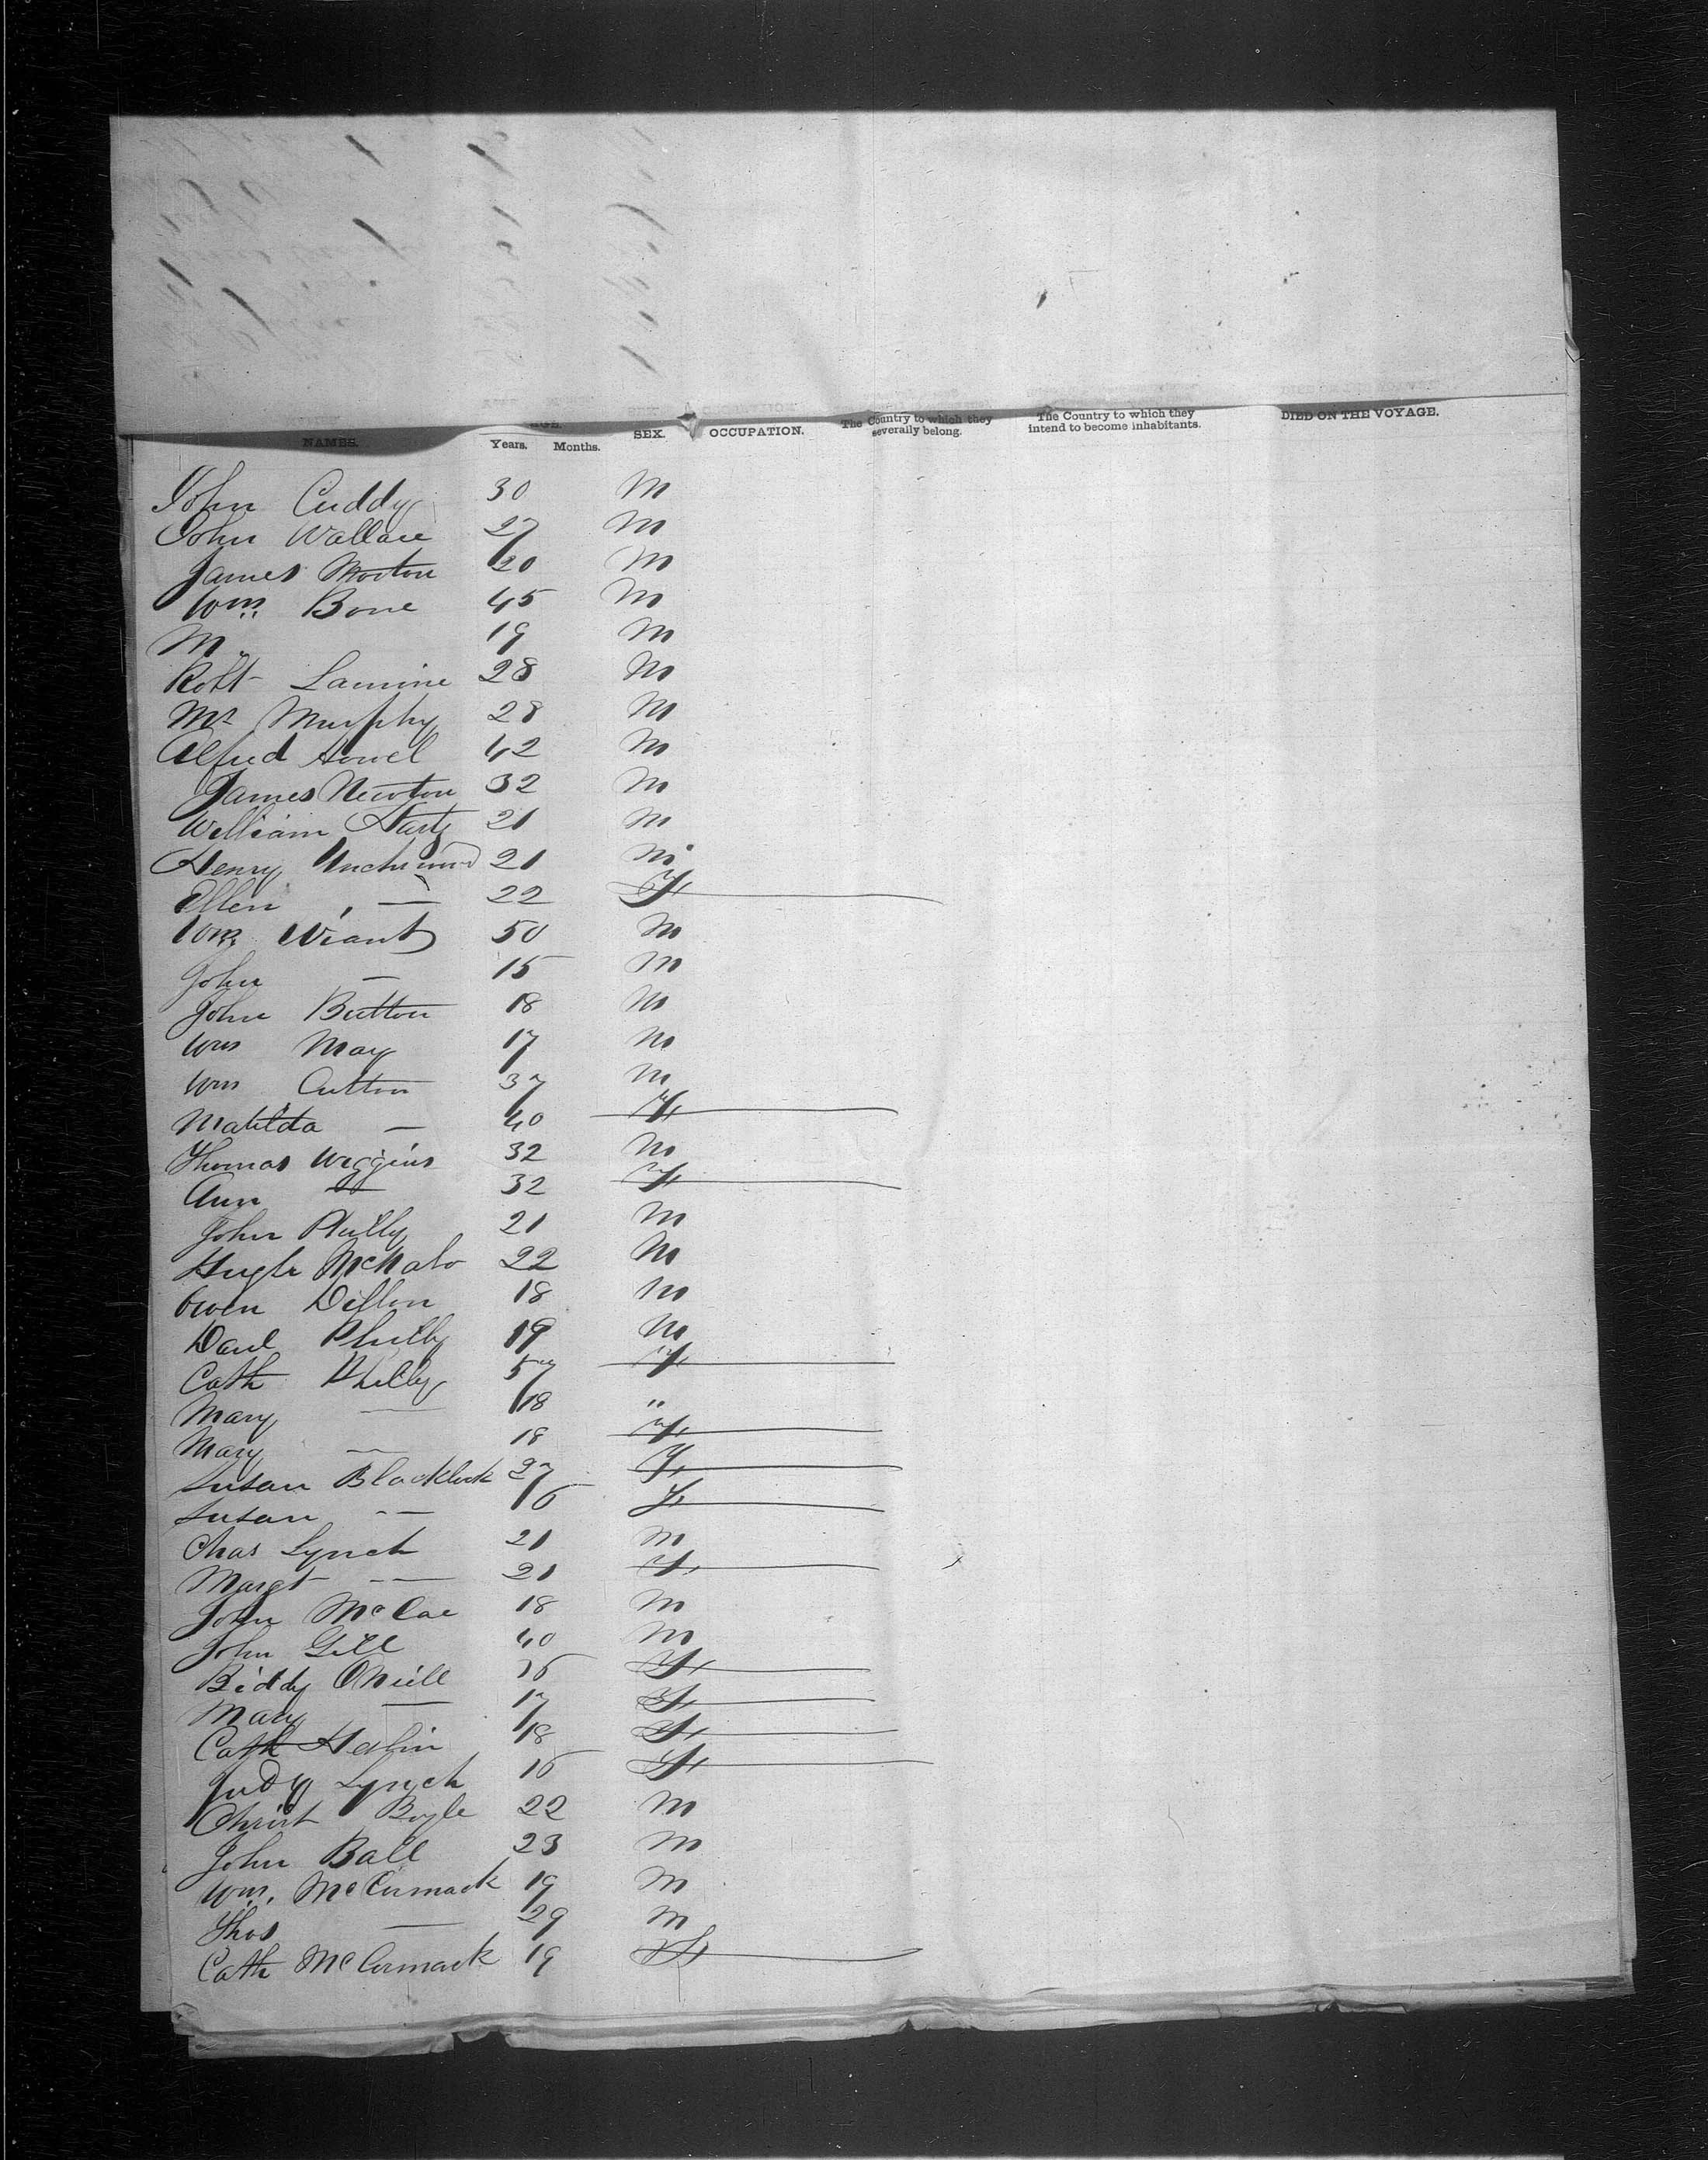 NAMES. AGE. Years. Months. SEX. OCCUPATION. The Country to which they severally belong. The Country to which they intend to become inhabitants. DIED ON THE VOYAGE.
John Cuddy 30 M
John Wallace 27 M
James Morton 20 M
Wm. Bone 45 M
M 19 M
Robt Lamine 28 M
Mr Murphy 28 M
Alfred Howel 42 M
James Newton 32 M
William 21 M
Henry 21 M
Ellen — 22 F
Wm Wiant 50 M
John — 15 M
John Button 18 M
Wm May 17 M
Wm Cutton 37 M
Matilda — 40 F
Thomas Wiggins 32 M
Ann — 32 F
John 21 M
Hugh McNabo 22 M
Owen Dillon 18 M
Danl Philly 19 M
Cath Philly 57 F
Mary — 18 "
Mary — 18 F
Susan Blacklock 27 F
Susan — 16 F
Chas Lynch 21 M
Margt — 21 F
John McCae 18 M
John Gill 40 M
Biddy ONeill 16 F
Mary — 17 F
Cath 18 F
Judy Lynch 16 F
Christ Boyle 22 M
John Ball 23 M
Wm. McCormack 19 M
Thos — 29 M
Cath McCormack 19 F